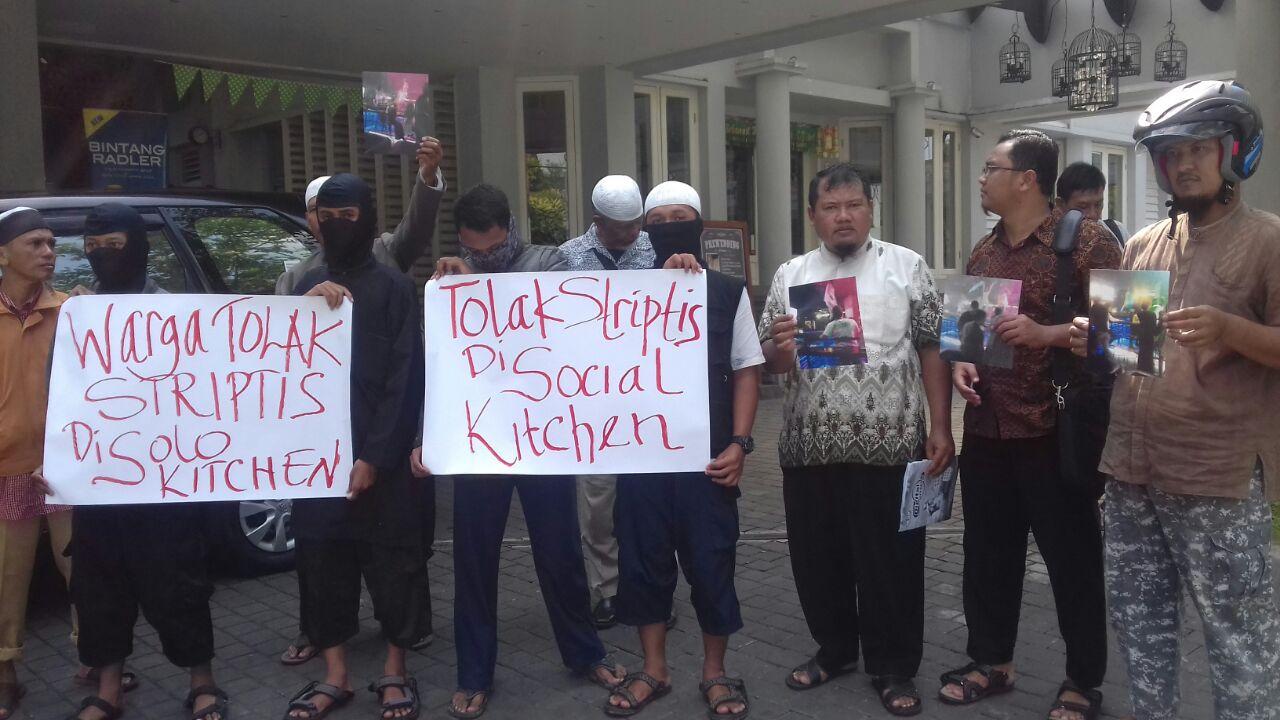 NEW
BINTANG
RADLER
Warga TOLAK
STRIPTIS
Di SOLO
KITCHEN
Tolak Striptis
Di Social
Kitchen
PREWEDDING